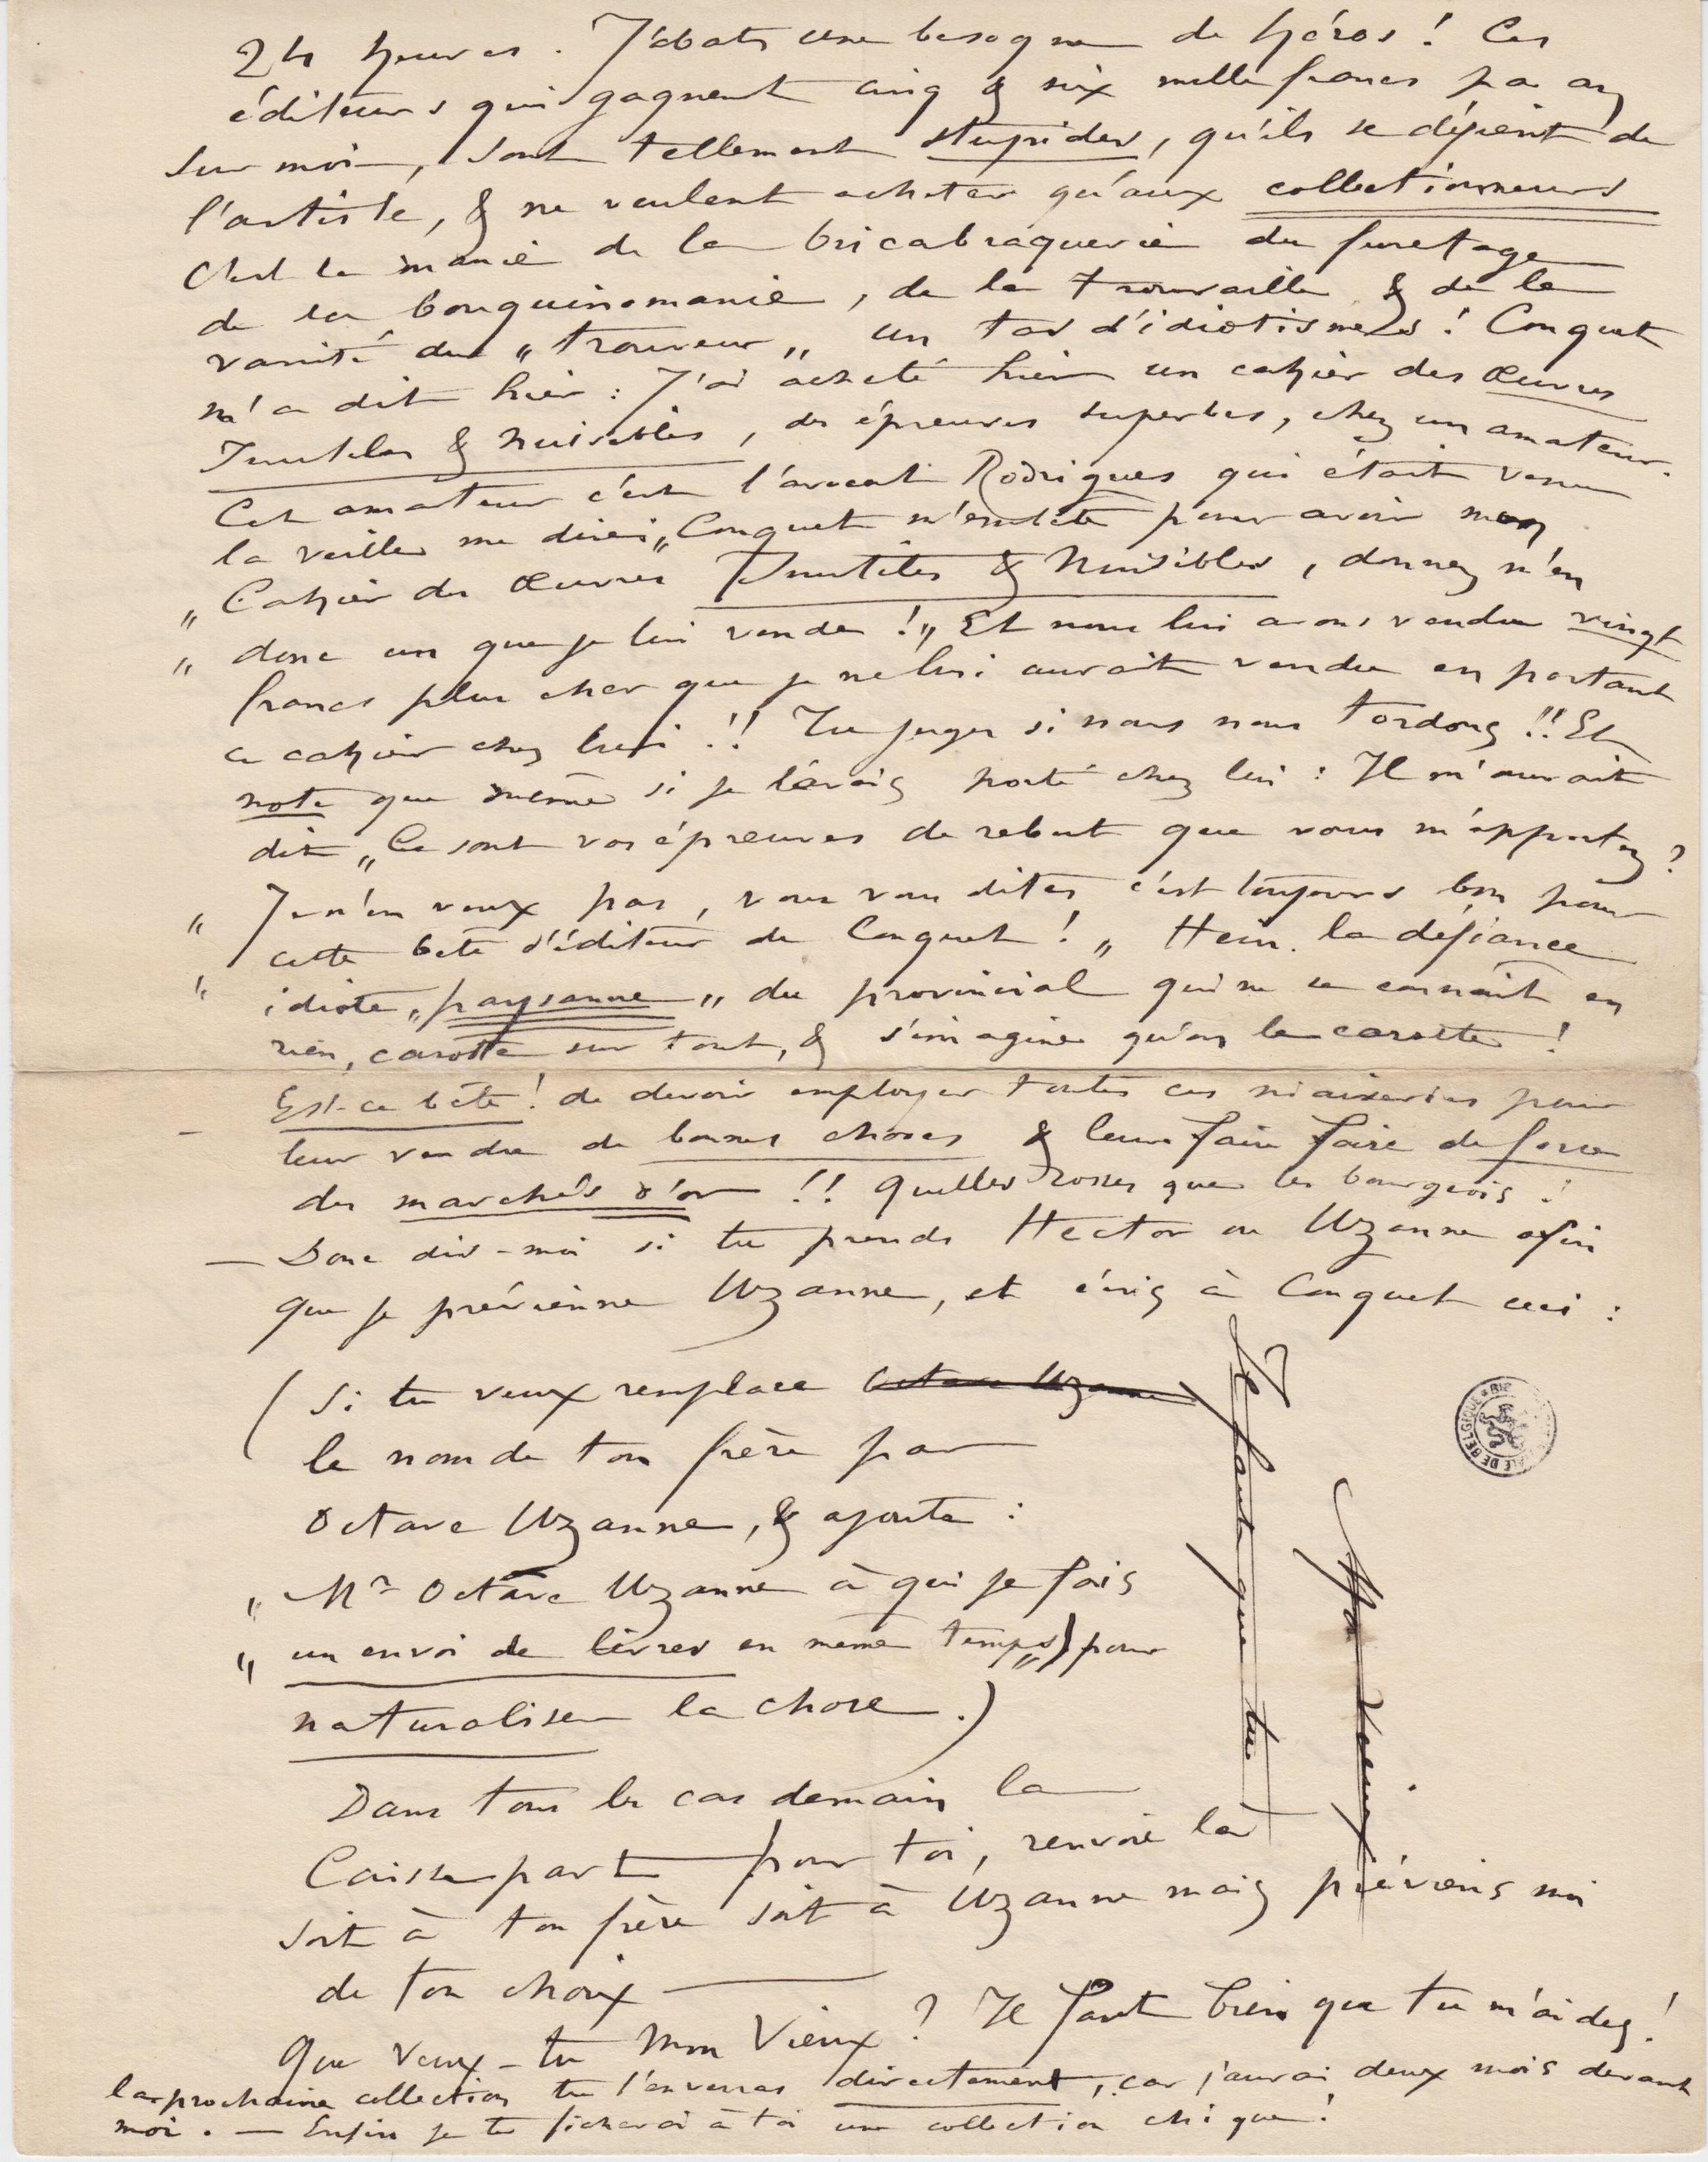 24 heures. J'abats une besogne de héros ! Ces
éditeurs qui gagnent cinq & six mille francs par an
sur moi, sont tellement stupides, qu'ils se défient de
l'artiste, & ne veulent acheter qu'aux collectionneurs
C'est la manie de la bricabraquerie du furetage
de la bouquinomanie, de la trouvaille & de la
vanité du „trouveur„ un tas d'idiotismes ! Conquet
m'a dit hier : J'ai acheté hier un cahier des Œuvres
Inutiles & Nuisibles, des épreuves superbes, chez un amateur.
Cet amateur c'est l'avocat Rodrigues qui était venu
la veille me dire : „Conquet m'embête pour avoir mon
„ Cahier des Œuvres Inutiles & Nuisibles, donnez m'en
„ donc un que je lui vende !„ Et nous lui avons vendu vingt
francs plus cher que je ne lui aurait vendu en portant
ce cahier chez lui !! Tu juges si nous nous tordons !! Et
note que même si je l'avais porté chez lui : Il m'aurait
dit „Ce sont vos épreuves de rebut que vous m'apportez ?
„ Je n'en veux pas, vous vous dites c'est toujours bon pour
„ cette bête d'éditeur de Conquet ! „ Hein. la défiance
idiote, „paysanne„ du provincial qui ne se connait en
rien, carotte sur tout, & s'imagine qu'on le carotte !
— Est-ce bête ! de devoir employer toutes ces niaiseries pour
leur vendre de bonnes choses & leur faire faire de force
des marchés d'or !! Quelles rosses que les bourgeois !
— Donc dis-moi si tu prends Hector ou Uzanne afin
que je prévienne Uzanne, et écris à Conquet ceci :
( Si tu veux remplace Octave Uzanne
le nom de ton frère par
Octave Uzanne, & ajoute :
„ Mr Octave Uzanne à qui je fais
„ un envoi de livres en même temps„) pour
naturaliser la chose.)
Dans tous les cas demain la
Caisse part pour toi, renvoie la
soit à ton frère soit à Uzanne mais préviens moi
de ton choix —
Que veux-tu Mon Vieux ? Il faut bien que tu m'aides !
la prochaine collection tu l'enverras directement, car j'aurai deux mois devant
moi. — Enfin je te ficherai à toi une collection chique !
Mon Vieux
Il faut que tu